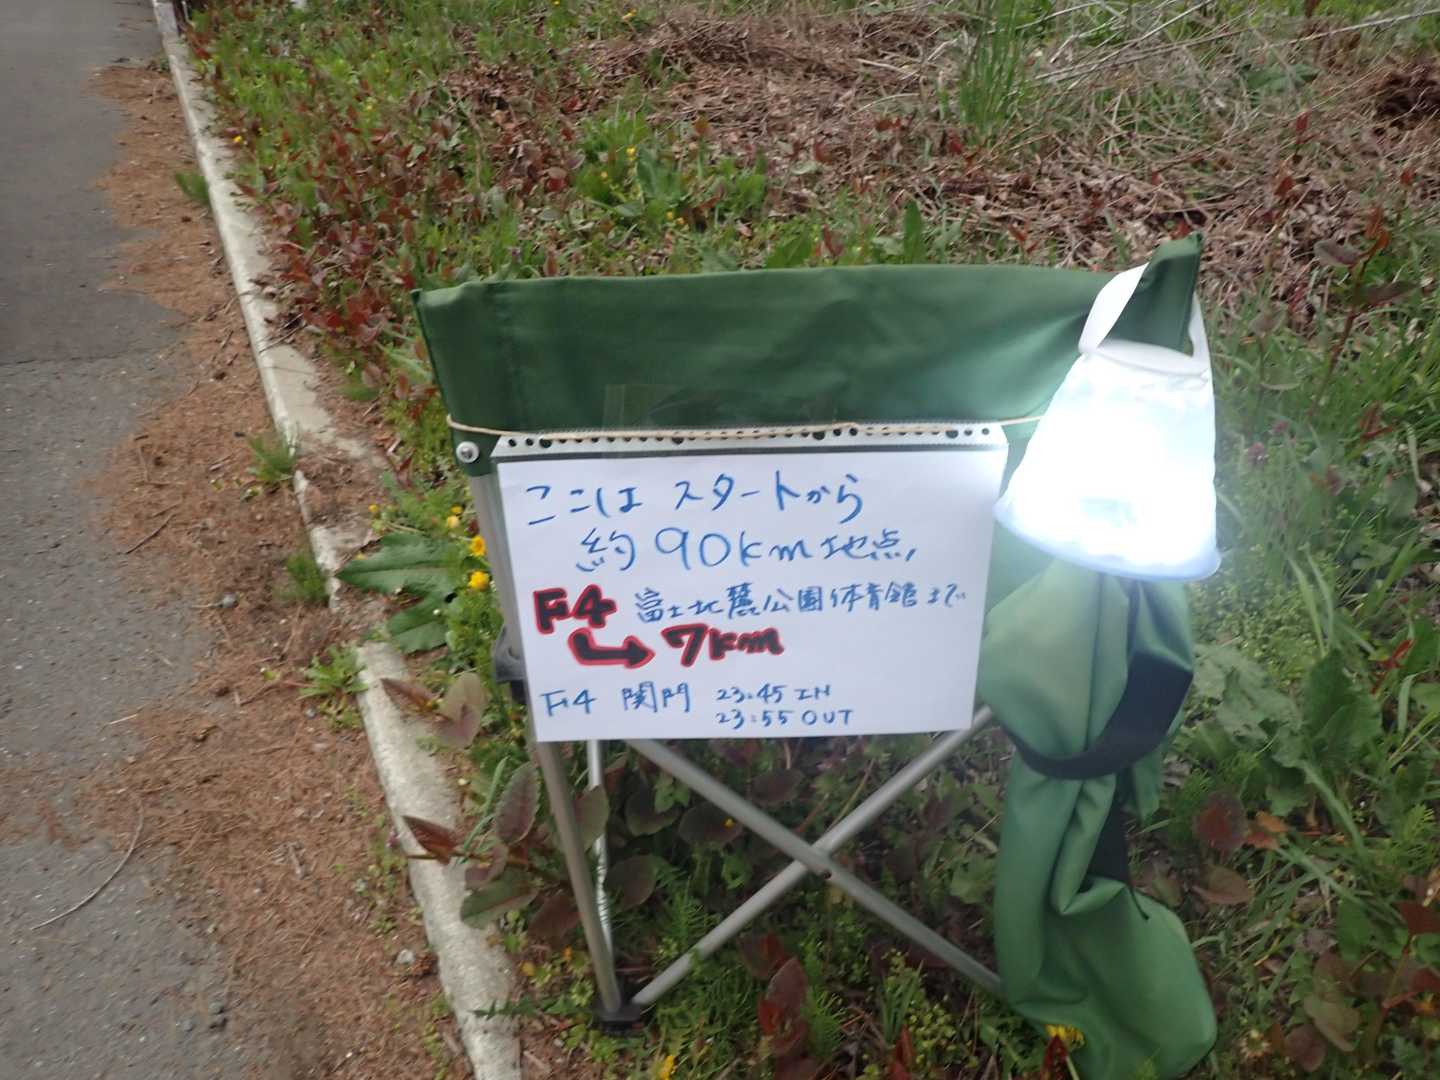 ここは スタートから
約 90km 地点
F4 富士北麓公園体育館まで
→ 7km
F4 関門 23:45 IN
23:55 OUT